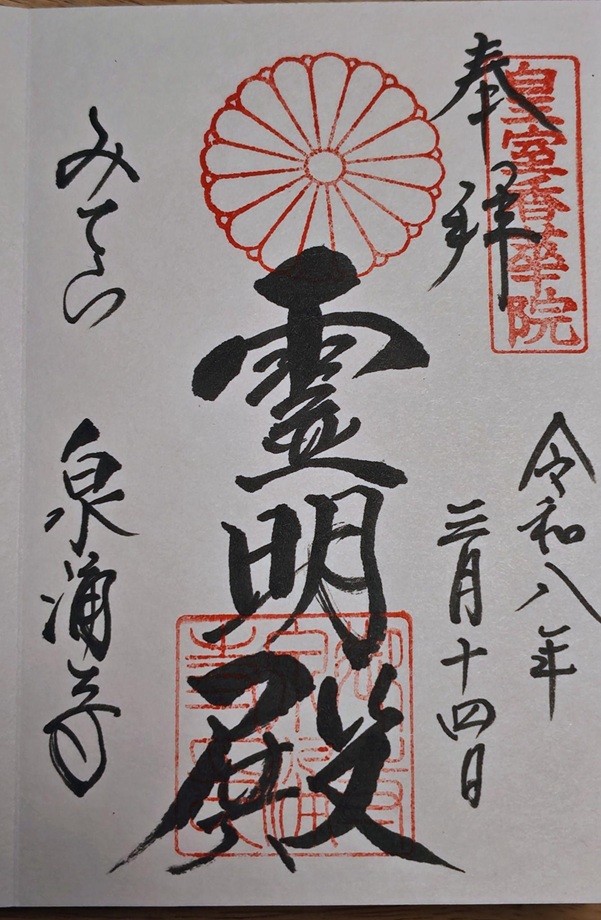 皇室香華院
奉拝
令和八年
三月十四日
霊明殿
みてら
泉涌寺